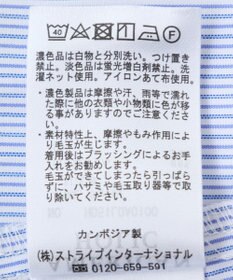 40
濃色品は白物と分別洗い。つけ置き
厳禁。淡色品は蛍光増白剤禁止。洗
濯ネット使用。アイロンあて布使用。
・濃色製品は摩擦や汗、雨等で濡れ
た際に他の衣類や小物類に色が移
る事がありますのでご注意くださ
い。
・素材特性上、摩擦やもみ作用によ
り毛玉が生じます。
着用後はブラッシングによるお手
入れをお勧めします。
毛玉ができてしまったら引っぱら
ずに、ハサミや毛玉取り器等で取
り除いてください。
カンボジア製
(株)ストライプインターナショナル
☎0120-659-591